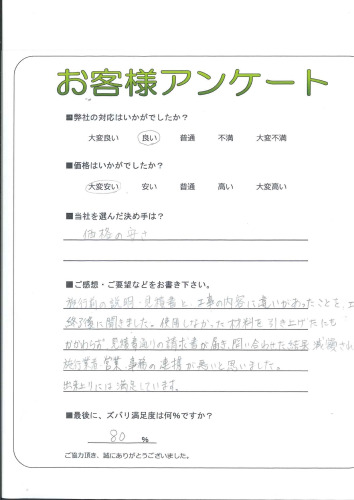 お客様アンケート
■弊社の対応はいかがでしたか？
大変良い 良い 普通 不満 大変不満
■価格はいかがでしたか？
大変安い 安い 普通 高い 大変高い
■当社を選んだ決め手は？
価格の安さ
■ご感想・ご要望などをお書き下さい。
施行前の説明・見積書と、工事の内容に違いがあったことを、工
終了後に聞きました。使用しなかった材料を引き上げたにも
かかわらず、見積書通りの請求書が届き、問い合わせた結果 減額され
施行業者・営業・事務の連携が悪いと思いました。
出来上りには満足しています。
■最後に、ズバリ満足度は何％ですか？
80 ％
ご協力頂き、誠にありがとうございました。